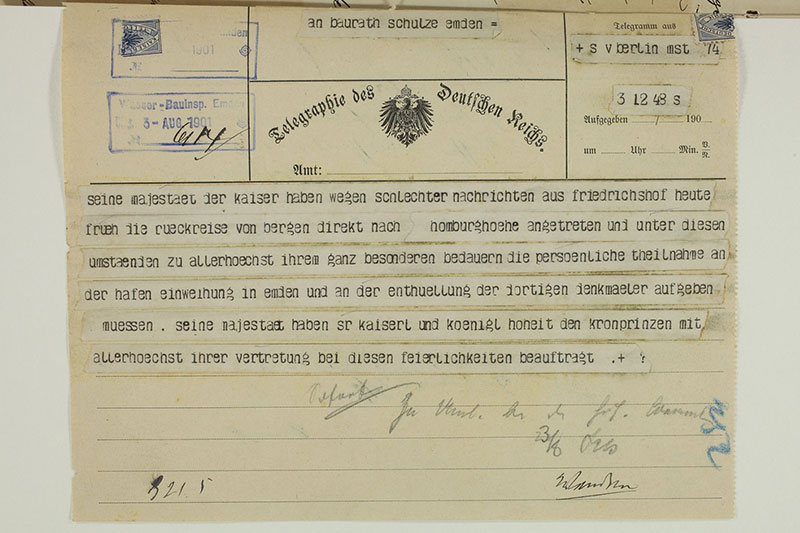 an baurath schulze emden =
Telegramm aus
+ s v berlin mst 74
1901
3 12 48 s
Wasser-Bauinsp. Emden
3-AUG 1901
Aufgegeben / 190
um Uhr Min. V. N.
Telegraphie des Deutschen Reichs.
Amt:
seine majestaet der kaiser haben wegen schlechter nachrichten aus friedrichshof heute
frueh die rueckreise von bergen direkt nach homburghoehe angetreten und unter diesen
umstaenden zu allerhoechst ihrem ganz besonderen bedauern die persoenliche theilnahme an
der hafen einweihung in emden und an der enthuellung der dortigen denkmaeler aufgeben
muessen . seine majestaet haben sr kaiserl und koenigl hoheit den kronprinzen mit
allerhoechst ihrer vertretung bei diesen feierlichkeiten beauftragt .+
Sofort
3/8